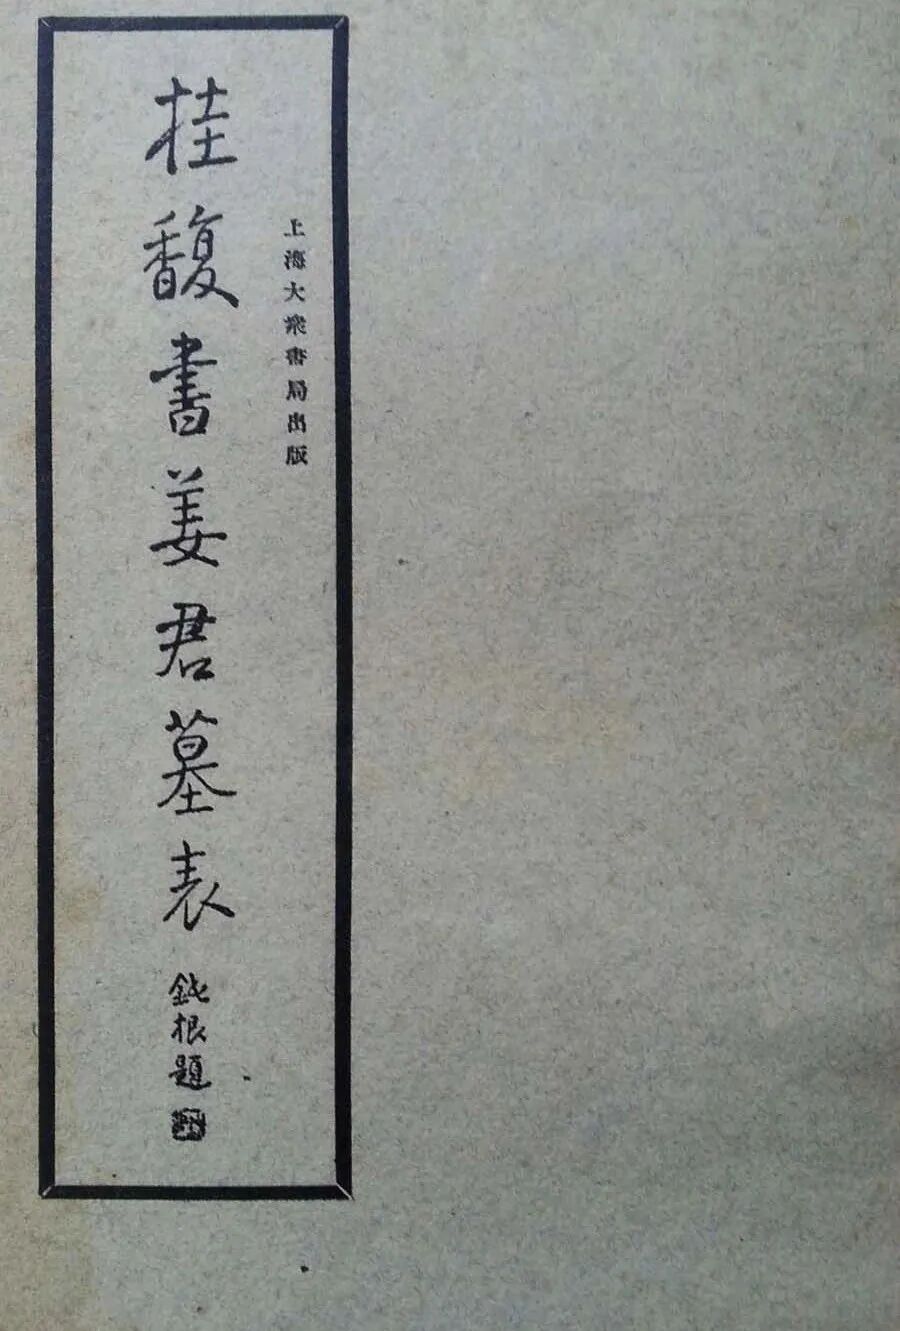 上海大衆書局出版
桂馥書姜君墓表
鈍根題